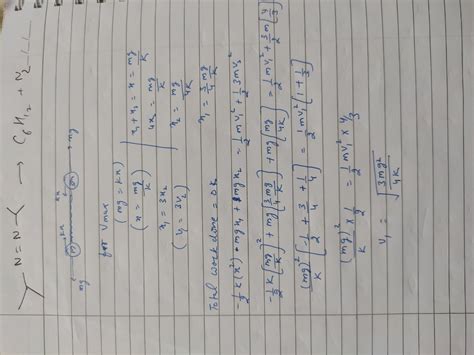 N = N → C6H12 + N2
mg kx kx mg
m 3m
for Vmax
(mg = kx)
(x = mg/k)
x1 + x2 = x = mg/k
4x2 = mg/k
x1 = 3x2
(v1 = 3v2)
x2 = mg/4k
x1 = 3/4 mg/k
Total work done = Δk
-1/2 k(x²) + mg x1 + mg x2 = 1/2 mv1² + 1/2 3mv2²
-1/2 k[mg/k]² + mg[3mg/4k] + mg[mg/4k] = 1/2 mv1² + 3m/2 [v1/3]²
(mg)²/k [-1/2 + 3/4 + 1/4] = 1/2 mv1² [1 + 1/3]
(mg)²/k × 1/2 = 1/2 mv1² × 4/3
v1 = √(3mg²/4k)